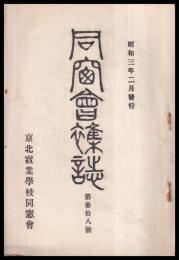 昭和三年二月發行
同窗會雜誌
第參拾八號
京北實業學校同窓會